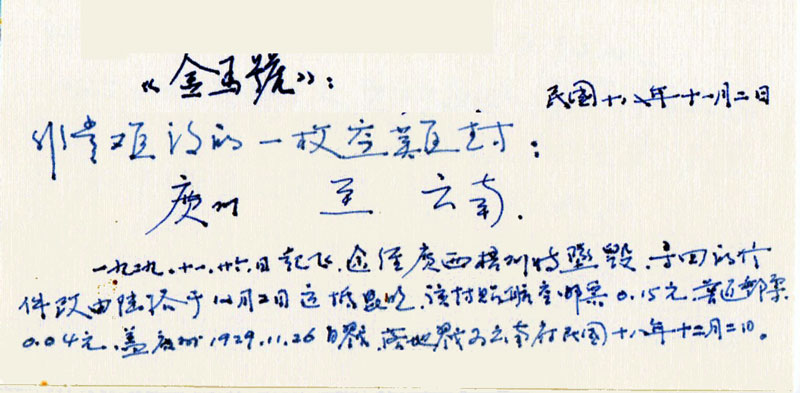 《金马號》：
民國十八年十一月二日
非常难得的一枚空難封：
廣州 至 云南.
一九二九.十一.廿六.日起飞.途径廣西梧州時墜毁.寻回的信
件改由陆路于12月2日运抵昆明.该封贴航空邮票0.15元.普通邮票
0.04元.盖廣州1929.11.26日戳.落地戳为云南府民國十八年十二月二日。